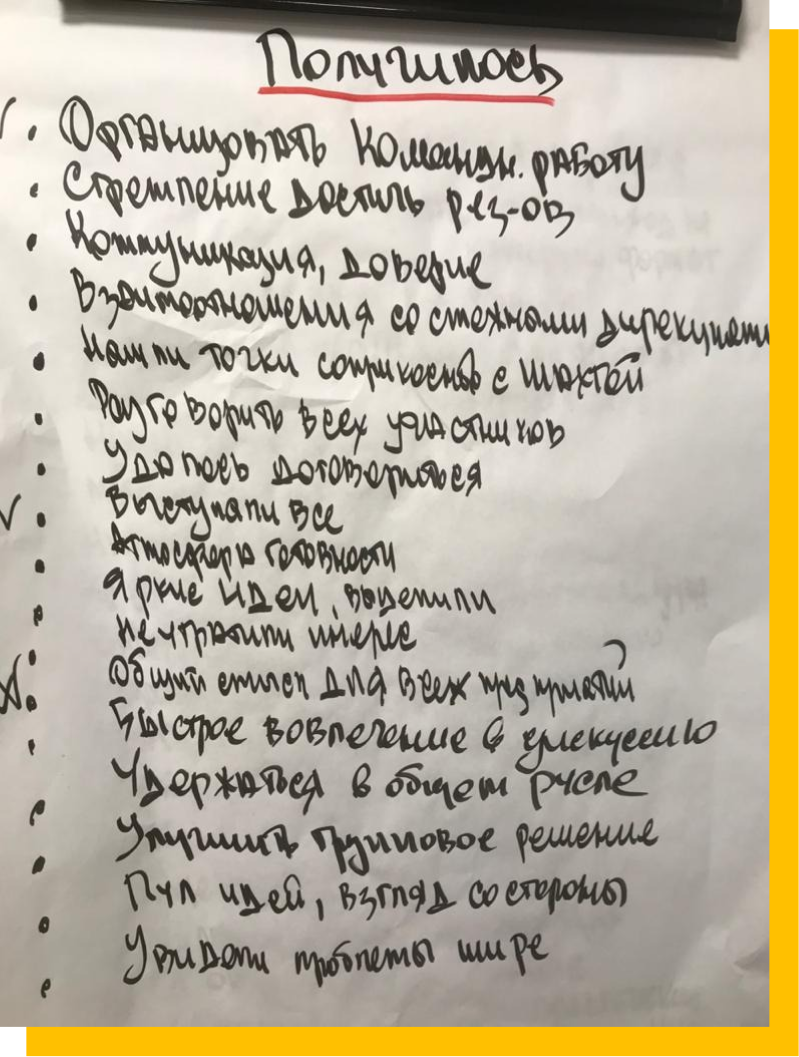 Получилось
Организовать командн. работу
Стремление достичь рез-ов
Коммуникация, доверие
Взаимоотношения со смежными дирекциями
Нашли точки соприкоснов с шахтой
Разговорить всех участников
Удалось договориться
Выступали все
Атмосфера готовности
Яркие идеи, выделили
Не утратили интерес
Общий смысл для всех предприятий
Быстрое вовлечение в дискуссию
Удержаться в общем русле
Улучшить групповое решение
Пул идей, взгляд со стороны
Увидели проблемы шире